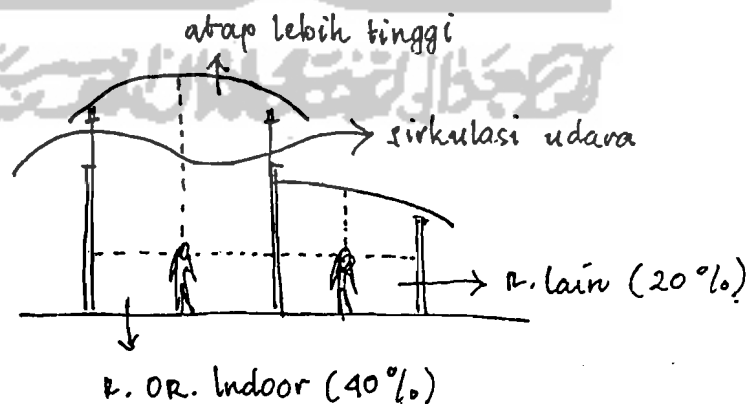 atap lebih tinggi
sirkulasi udara
R. lain (20%)
R. OR. Indoor (40%)